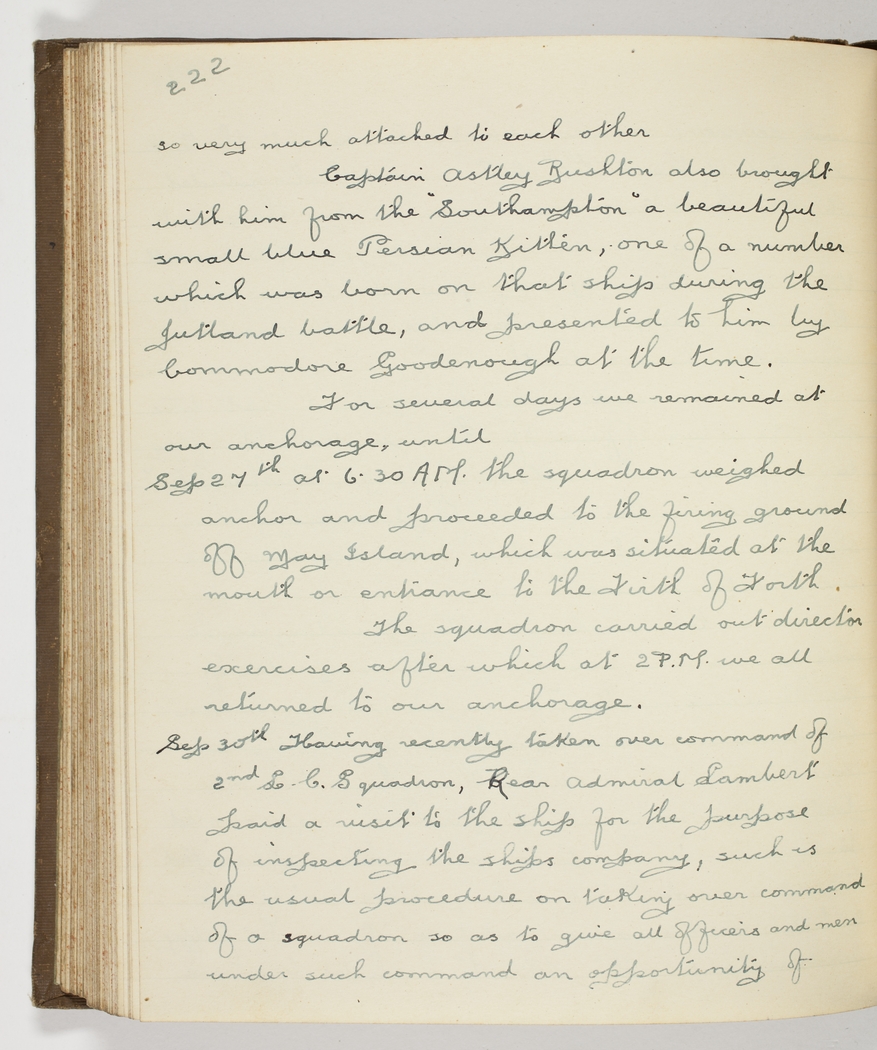 222
so very much attached to each other
Captain Astley Rushton also brought
with him from the "Southampton" a beautiful
small blue Persian Kitten, one of a number
which was born on that ship during the
Jutland battle, and presented to him by
Commodore Goodenough at the time.
For several days we remained at
our anchorage, until
Sep 27th at 6.30 A.M. the squadron weighed
anchor and proceeded to the firing ground
off May Island, which was situated at the
mouth or entrance to the Firth of Forth.
The squadron carried out director
exercises after which at 2 P.M. we all
returned to our anchorage.
Sep 30th Having recently taken over command of
2nd L.C. Squadron, Rear Admiral Lambert
paid a visit to the ship for the purpose
of inspecting the ships company, such is
the usual procedure on taking over command
of a squadron so as to give all officers and men
under such command an opportunity of